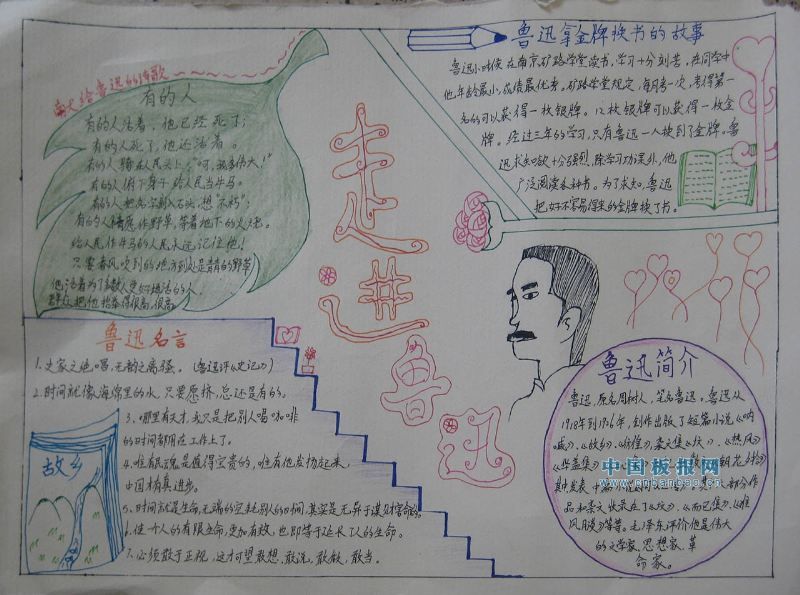 南大给鲁迅的诗歌
有的人
有的人活着,他已经死了;
有的人死了,他还活着。
有的人骑在人民头上:"呵,我多伟大!"
有的人俯下身子给人民当牛马。
有的人把名字刻入石头,想"不朽";
有的人情愿作野草,等着地下的火烧。
给人民作牛马的人民永远记住他!
只要春风吹到的地方到处是青青的野草
他活着为了多数人更好地活的人
群众把他抬举得很高,很高。
走进鲁迅
鲁迅拿金牌换书的故事
鲁迅小时候在南京矿路学堂读书,学习十分刻苦,在同学中
他年龄最小,成绩最优秀。矿路学堂规定,每月考一次,考得第一
名的可以获得一枚银牌。12枚银牌可以获得一枚金
牌。经过三年的学习,只有鲁迅一人换到了金牌。鲁
迅求知欲十分强烈,除学习功课外,他
广泛阅读各科书。为了求知,鲁迅
把好不容易得来的金牌换了书。
鲁迅名言
1.史家之绝唱,无韵之离骚。(鲁迅评《史记》)
2.时间就像海绵里的水,只要愿挤,总还是有的。
3.哪里有天才,我只是把别人喝咖啡
的时间都用在工作上了。
4.唯有民魂是值得宝贵的,唯有他发扬起来,
中国才有真进步。
5.时间就是生命,无端的空耗别人的时间,其实是无异于谋财害命的。
6.使一个人的有限生命,更加有效,也即等于延长了人的生命。
7.必须敢于正视,这才可望敢想,敢说,敢做,敢当。
故乡
鲁迅简介
鲁迅,原名周树人,笔名鲁迅。鲁迅从
1918年到1926年,创作出版了短篇小说《呐
喊》、《故乡》、《彷徨》、杂文集《坟》、《热风》
《华盖集》
朝花夕拾》
部分作
品和杂文收录在了《坟》、《而已集》、《准
风月谈》等等。毛泽东评价他是伟大
的文学家、思想家、革
命家。
中国板报网
www.cnbanbao.cn